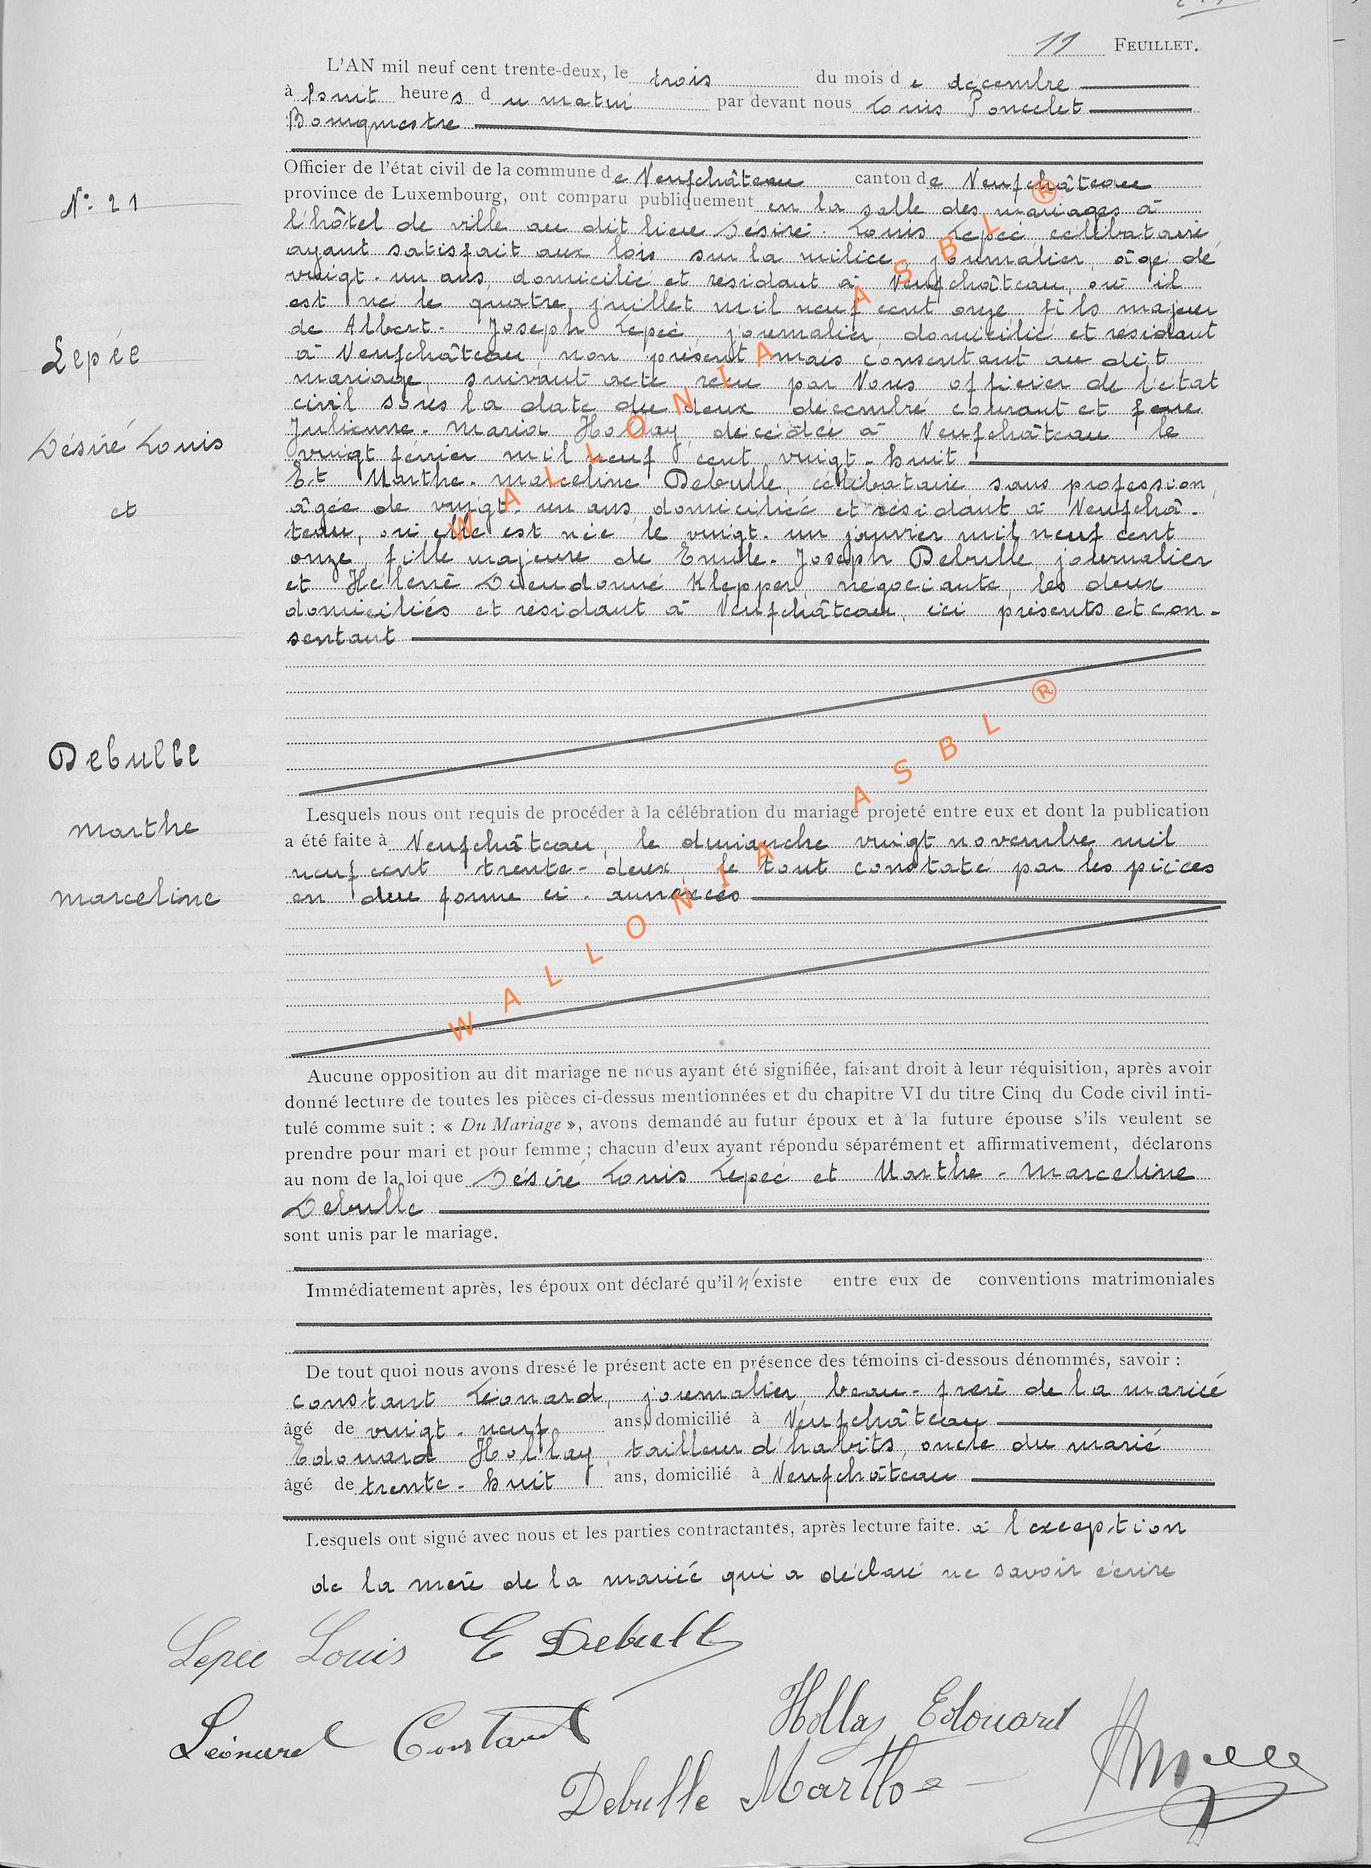 11 FEUILLET.
L'AN mil neuf cent trente-deux, le trois du mois de décembre
à huit heures du matin par devant nous Louis Poncelet
Bourgmestre
Officier de l'état civil de la commune de Neufchâteau canton de Neufchâteau
province de Luxembourg, ont comparu publiquement en la salle des mariages à
N° 21
l'hôtel de ville au dit lieu Désiré-Louis Lepée célibataire,
ayant satisfait aux lois sur la milice, journalier, âgé de
vingt-un ans, domicilié et résidant à Neufchâteau, où il
est né le quatre juillet mil neuf cent onze, fils majeur
de Albert-Joseph Lepée, journalier, domicilié et résidant
à Neufchâteau, non présent mais consentant au dit
mariage, suivant acte reçu par Nous officier de l'état
civil sous la date du deux décembre courant et feue
Julienne-Maria Hollay, décédée à Neufchâteau le
vingt février mil neuf cent vingt-huit
Et Marthe-Marceline Debulle, célibataire sans profession,
âgée de vingt-un ans, domiciliée et résidant à Neufchâ-
teau, où elle est née le vingt-un janvier mil neuf cent
onze, fille majeure de Emile-Joseph Debulle, journalier
et Hélène Dieudonné Klepper, négociante, les deux
domiciliés et résidant à Neufchâteau, ici présents et con-
sentant
Lepée
Désiré Louis
et
Debulle
Marthe
Marceline
Lesquels nous ont requis de procéder à la célébration du mariage projeté entre eux et dont la publication
a été faite à Neufchâteau, le dimanche vingt novembre mil
neuf cent trente-deux, le tout constaté par les pièces
en due forme ci-annexées
Aucune opposition au dit mariage ne nous ayant été signifiée, faisant droit à leur réquisition, après avoir
donné lecture de toutes les pièces ci-dessus mentionnées et du chapitre VI du titre Cinq du Code civil inti-
tulé comme suit : « Du Mariage », avons demandé au futur époux et à la future épouse s'ils veulent se
prendre pour mari et pour femme ; chacun d'eux ayant répondu séparément et affirmativement, déclarons
au nom de la loi que Désiré Louis Lepée et Marthe-Marceline
Debulle
sont unis par le mariage.
Immédiatement après, les époux ont déclaré qu'il n'existe entre eux de conventions matrimoniales
De tout quoi nous avons dressé le présent acte en présence des témoins ci-dessous dénommés, savoir :
Constant Léonard, journalier, beau-frère de la mariée
âgé de vingt-neuf ans, domicilié à Neufchâteau
Edouard Hollay, tailleur d'habits, oncle du marié
âgé de trente-huit ans, domicilié à Neufchâteau
Lesquels ont signé avec nous et les parties contractantes, après lecture faite. à l'exception
de la mère de la mariée qui a déclaré ne savoir écrire
Lepée Louis E Debulle
Léonard Constant Hollay Edouard
Debulle Marthe
WALLONIA ASBL ®
WALLONIA ASBL ®